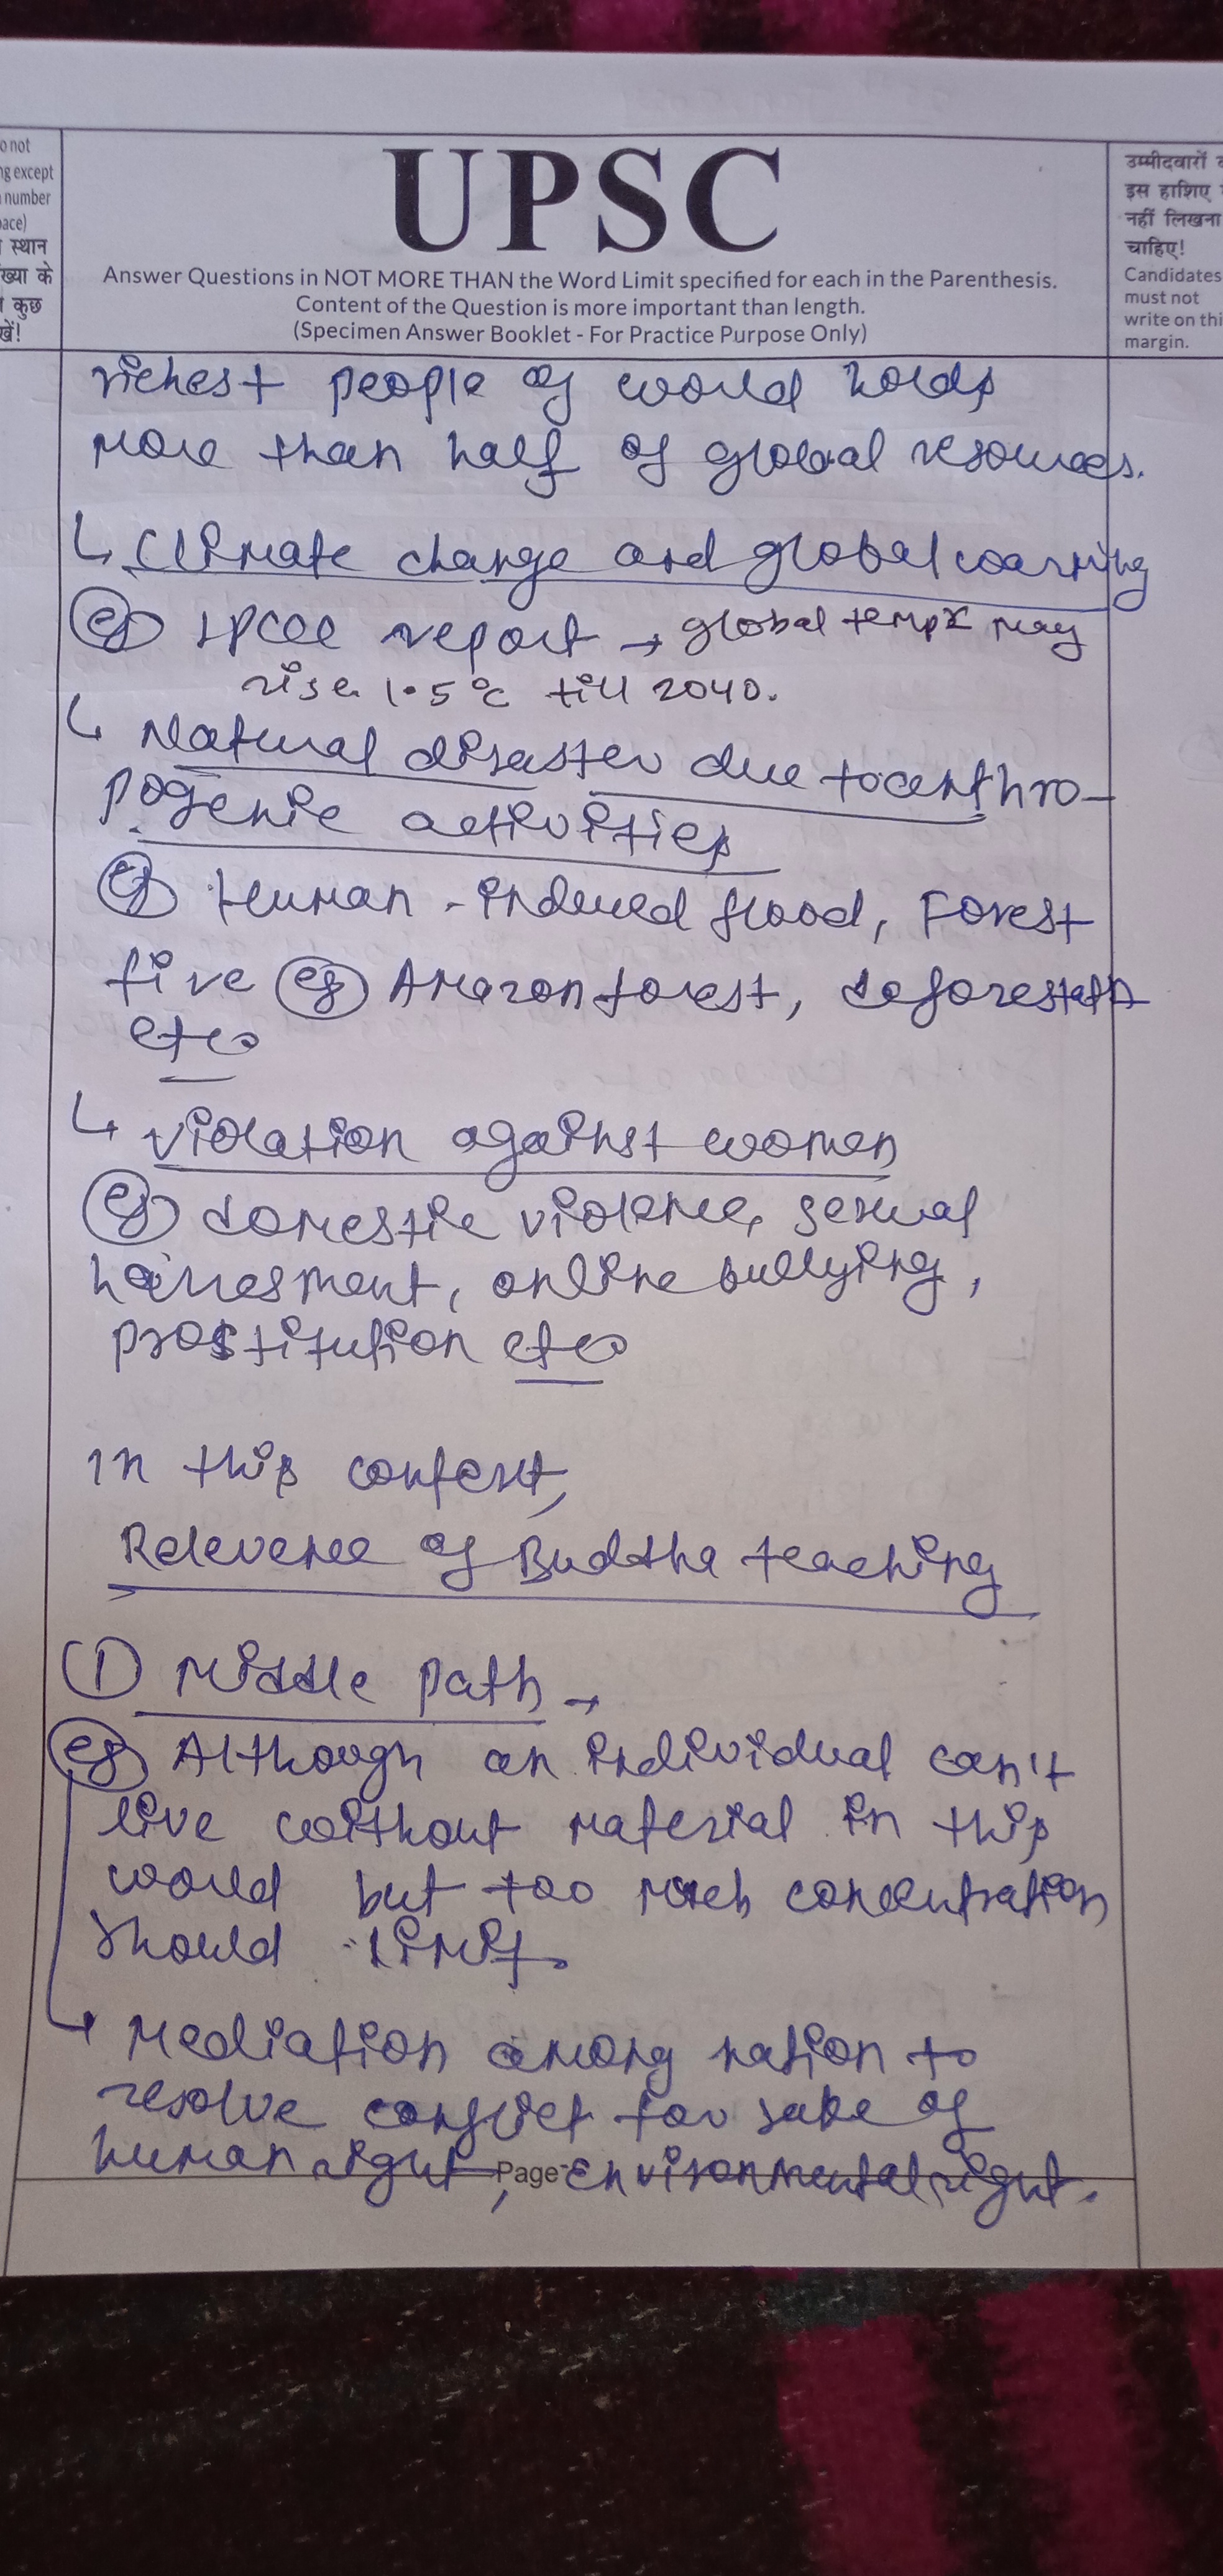 o not
ng except
number
pace)
स्थान
ख्या के
कुछ
खें!
UPSC
Answer Questions in NOT MORE THAN the Word Limit specified for each in the Parenthesis.
Content of the Question is more important than length.
(Specimen Answer Booklet - For Practice Purpose Only)
उम्मीदवारों
इस हाशिए
नहीं लिखना
चाहिए!
Candidates
must not
write on thi
margin.
richest people of world holds
more than half of global resources.
↳ Climate change and global warming
eg IPCC report → global tempr may
rise 1.5°C till 2040.
↳ Natural disaster due to anthro-
pogenic activities
eg Human-induced flood, Forest
fire eg Amazon forest, deforestatn
etc
↳ violation against women
eg domestic violence, sexual
harresment, online bullying,
prostitution etc
In this context,
Relevence of Buddha teaching
① Middle path →
eg Although an individual can't
live without material in this
world but too much concentration
should limit.
↳ Mediation among nation to
resolve conflict for sake of
human right, environmental right.
Page